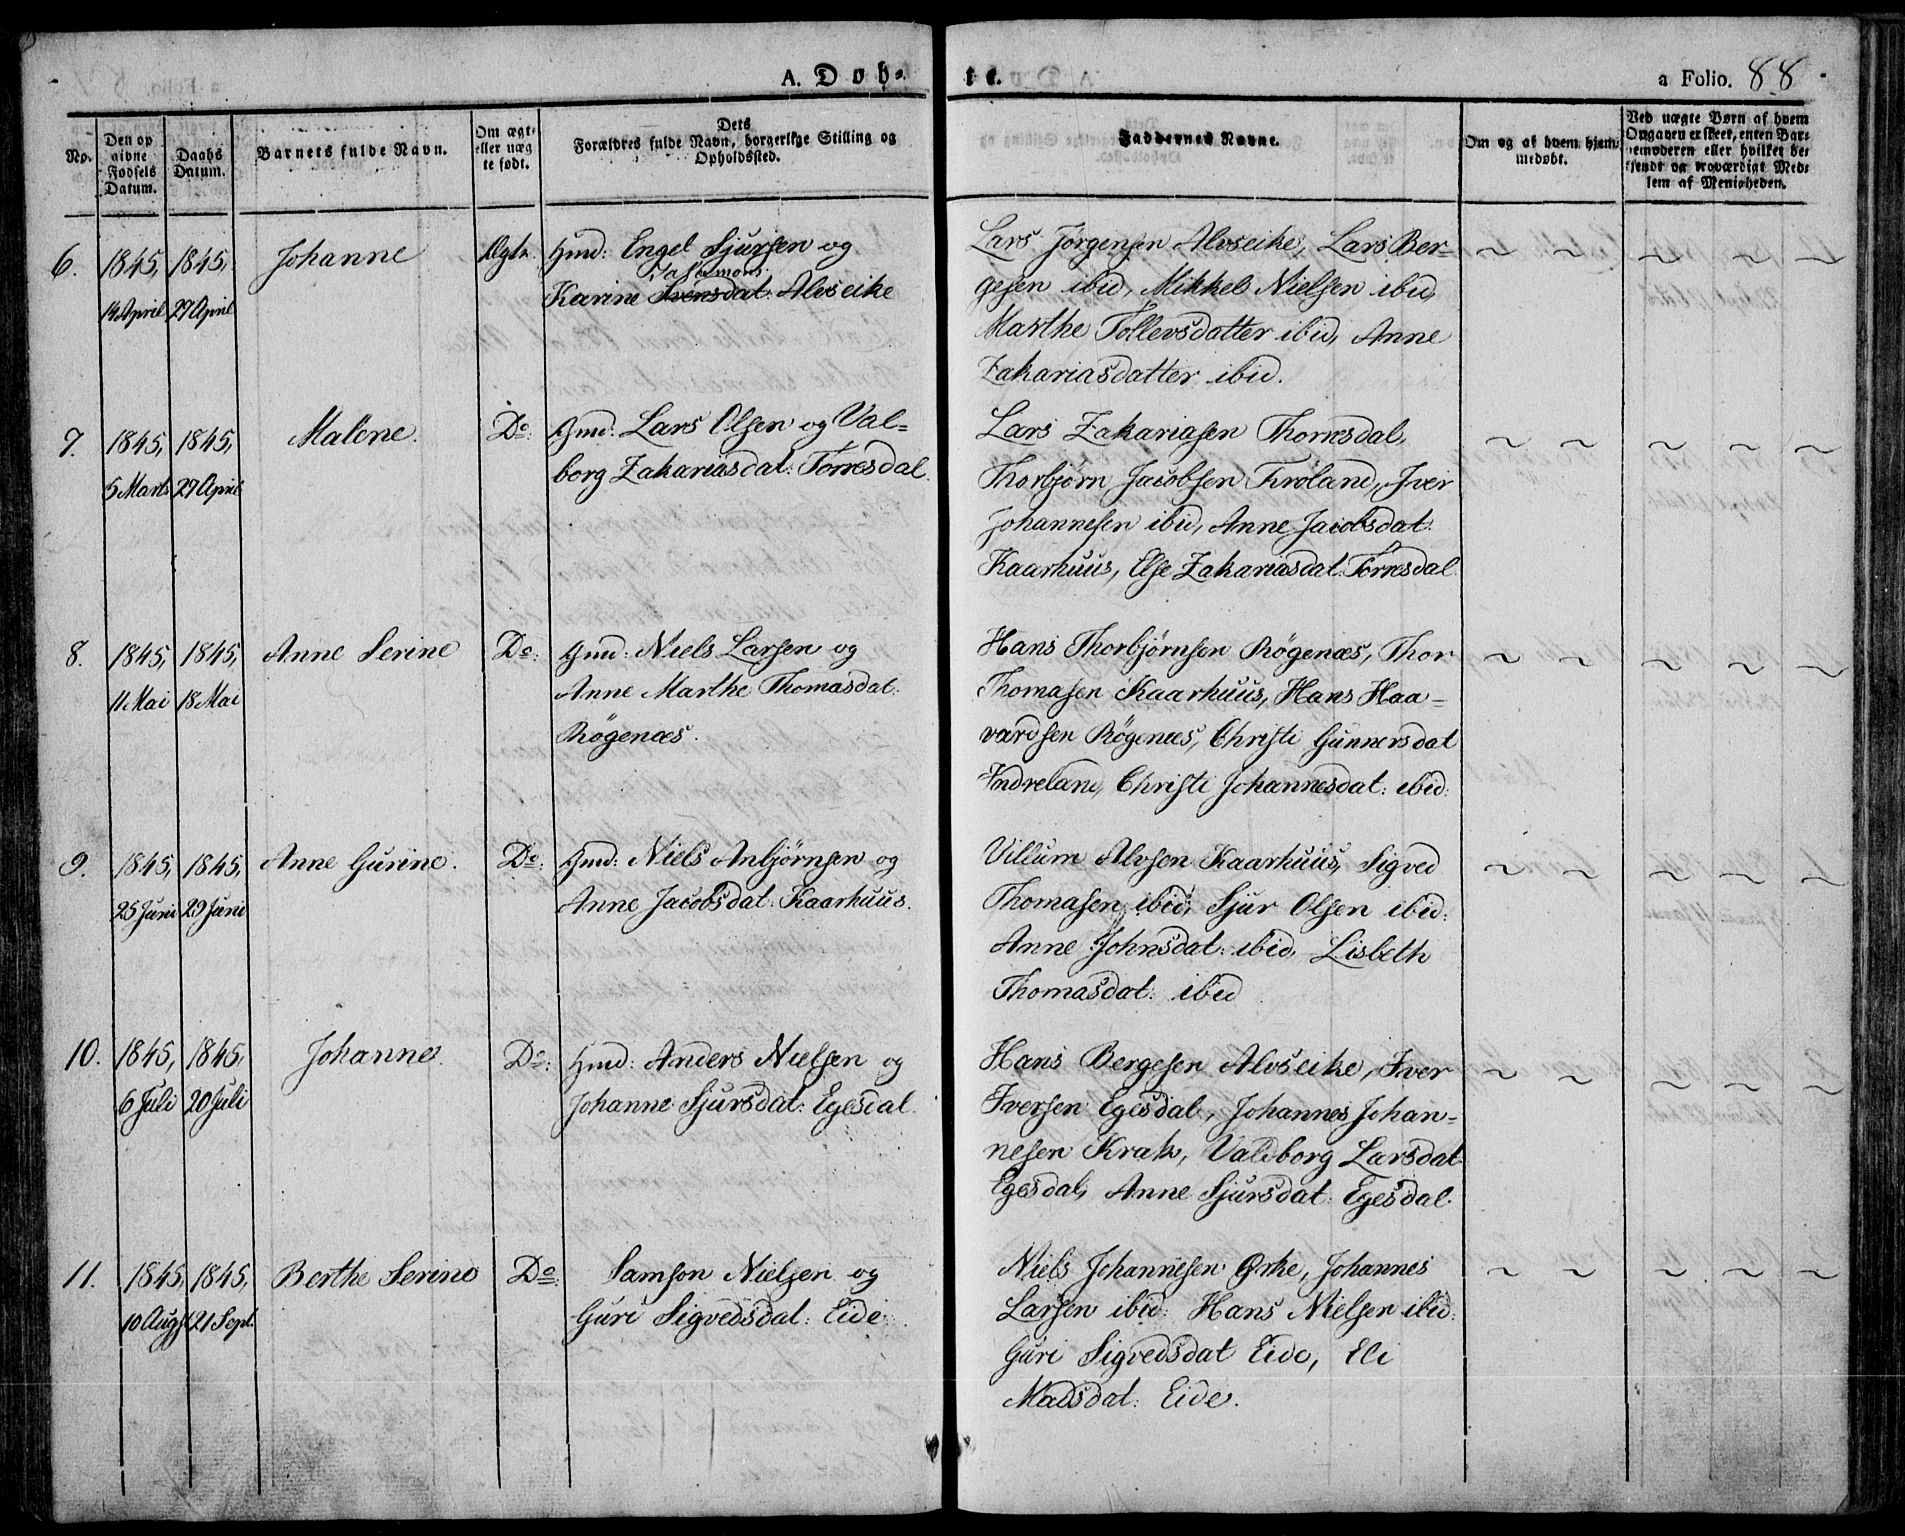 A. Døb-
te.
a Folio. 88
No.
Den op
givne
Fødsels
Datum.
Daabs
Datum.
Barnets fulde Navn.
Om ægt-
eller uæg
te født.
Dets
Forældres fulde Navn, borgerlige Stilling og
Opholdssted.
Faddernes Navne.
Om og af hvem hjem-
medøbt.
Ved uægte Børn af hvem
Opgaven er skeet, enten Bar-
nemoderen eller hvilket be-
kjendt og troværdigt Med-
lem af Menigheden.
6.
1845,
14 April
1845,
27 April
Johanne
Ægte
Gmd: Engel Sjursen og
Salamons
Karine Svensdat: Alvseike
Lars Jørgensen Alvseike, Lars Ber-
gesen ibid, Mikkel Nielsen ibid,
Marthe Tollevsdatter ibid, Anne
Zakariasdatter ibid.
7.
1845,
5 Marts
1845,
27 April
Malene.
Do:
Gmd: Lars Olsen og Val-
borg Zakariasdat: Torresdal.
Lars Zakariasen Thorresdal,
Thorbjørn Jacobsen Frøland, Iver
Johannesen ibid, Anne Jacobsdat:
Kaarhuus, Else Zakariasdat: Torresdal
8.
1845,
11 Mai
1845,
18 Mai
Anne Serine
Do:
Gmd: Niels Larsen og
Anne Marthe Thomasdat:
Røgenæs.
Hans Thorbjørnsen Røgenæs, Thor
Thomasen Kaarhuus, Hans Haa-
vardsen Røgenæs, Christi Gunnersdat
Indreland, Christi Johannesdat: ibid:
9.
1845,
25 Juni
1845,
29 Juni
Anne Gurine.
Do:
Gmd: Niels Anbjørnsen og
Anne Jacobsdat: Kaarhuus.
Villum Alvsen Kaarhuus, Sigved
Thomasen ibid, Sjur Olsen ibid:
Anne Johnsdat: ibid, Lisbeth
Thomasdat: ibid
10.
1845,
6 Juli
1845,
20 Juli
Johanne.
Do:
Gmd: Anders Nielsen og
Johanne Sjursdat: Egesdal.
Hans Bergesen Alvseike, Iver
Iversen Egesdal, Johannes Johan-
nesen Krak, Valdborg Larsdat
Egesdal, Anne Sjursdat: Egesdal.
11.
1845,
10 Augst
1845,
21 Sept.
Berthe Serine
Do:
Samson Nielsen og
Guri Sigvedsdat: Eide.
Niels Johannesen Ørke, Johannes
Larsen ibid: Hans Nielsen ibid:
Guri Sigvedsdat Eide, Eli
Madsdat: Eide.